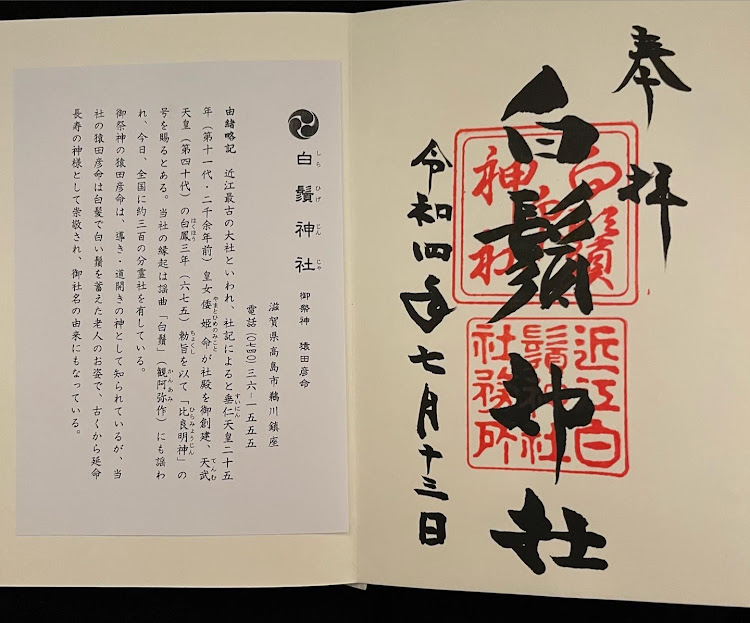 奉拝
白鬚神社
令和四年七月十三日
白鬚
神社
近江白
鬚神社
社務所
白鬚神社 御祭神 猿田彦命
しらひげじんじゃ
滋賀県高島市鵜川鎮座
電話(〇七四〇)三六ー一五五五
由緒略記 近江最古の大社といわれ、社記によると垂仁天皇二十五
すいにん
年(第十一代・二千余年前)皇女倭姫命が社殿を御創建、天武
やまとひめのみこと
てんむ
天皇(第四十代)の白鳳三年(六七五)勅旨を以て「比良明神」の
はくほう
ちょくし
ひらみょうじん
号を賜るとある。当社の縁起は謡曲「白鬚」(観阿弥作)にも謡わ
かんあみ
れ、今日、全国に約三百の分霊社を有している。
御祭神の猿田彦命は、導き・道開きの神として知られているが、当
社の猿田彦命は白髪で白い鬚を蓄えた老人のお姿で、古くから延命
長寿の神様として崇敬され、御社名の由来にもなっている。